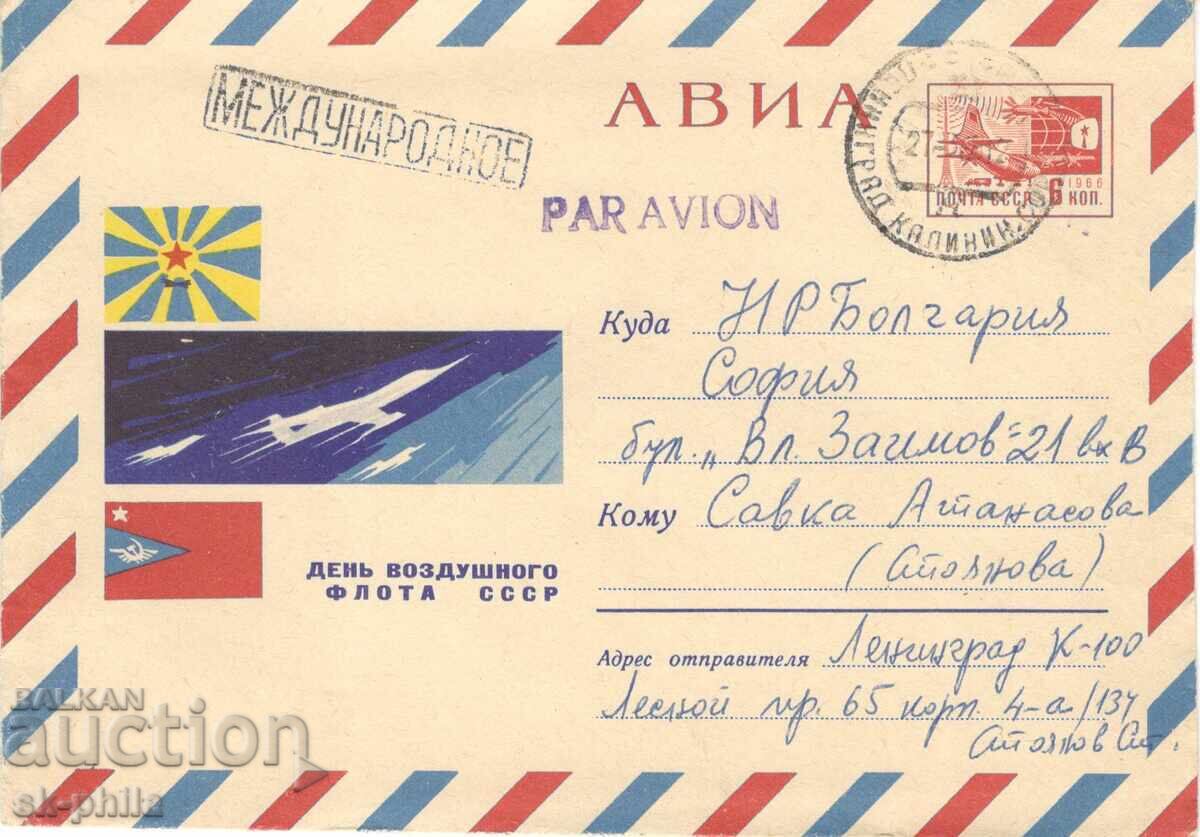 МЕЖДУНАРОДНОЕ
АВИА
PAR AVION
1966
ПОЧТА СССР 6 КОП.
Куда НР Болгария
София
бул. „Вл. Заимов" 21 вх В
Кому Савка Атанасова
(Стоянова)
ДЕНЬ ВОЗДУШНОГО
ФЛОТА СССР
Адрес отправителя Ленинград К-100
Лесной пр. 65 корп. 4-а/137
Стоянов Ст.
BALKAN
auction
sk-phila